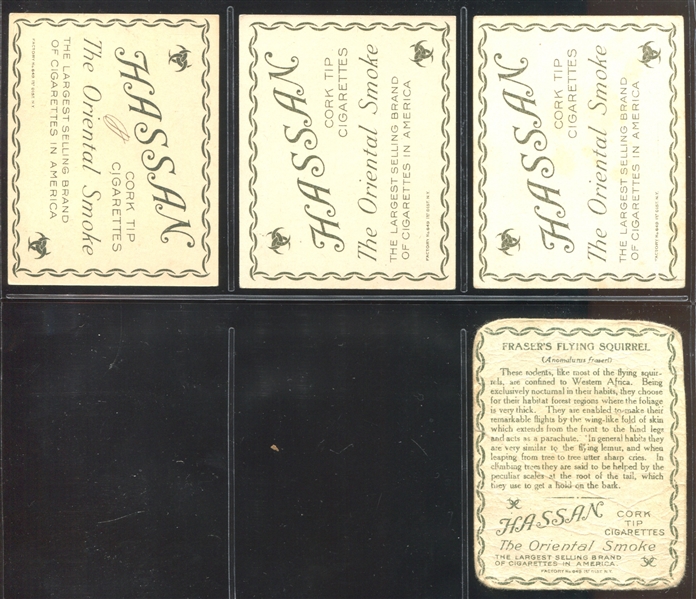 HASSAN
CORK TIP
CIGARETTES
The Oriental Smoke
THE LARGEST SELLING BRAND
OF CIGARETTES IN AMERICA
HASSAN
CORK TIP
CIGARETTES
The Oriental Smoke
THE LARGEST SELLING BRAND
OF CIGARETTES IN AMERICA
HASSAN
CORK TIP
CIGARETTES
The Oriental Smoke
THE LARGEST SELLING BRAND
OF CIGARETTES IN AMERICA
FRASER'S FLYING SQUIRREL
(Anomalurus fraseri)
These rodents, like most of the flying squir-
rels, are confined to Western Africa. Being
exclusively nocturnal in their habits, they choose
for their habitat forest regions where the foliage
is very thick. They are enabled to make their
remarkable flights by the wing-like fold of skin
which extends from the front to the hind legs
and acts as a parachute. In general habits they
are very similar to the flying lemur, and when
leaping from tree to tree utter sharp cries. In
climbing trees they are said to be helped by the
peculiar scales at the root of the tail, which
they use to get a hold on the bark.
HASSAN
CORK
TIP
CIGARETTES
The Oriental Smoke
THE LARGEST SELLING BRAND
OF CIGARETTES IN AMERICA